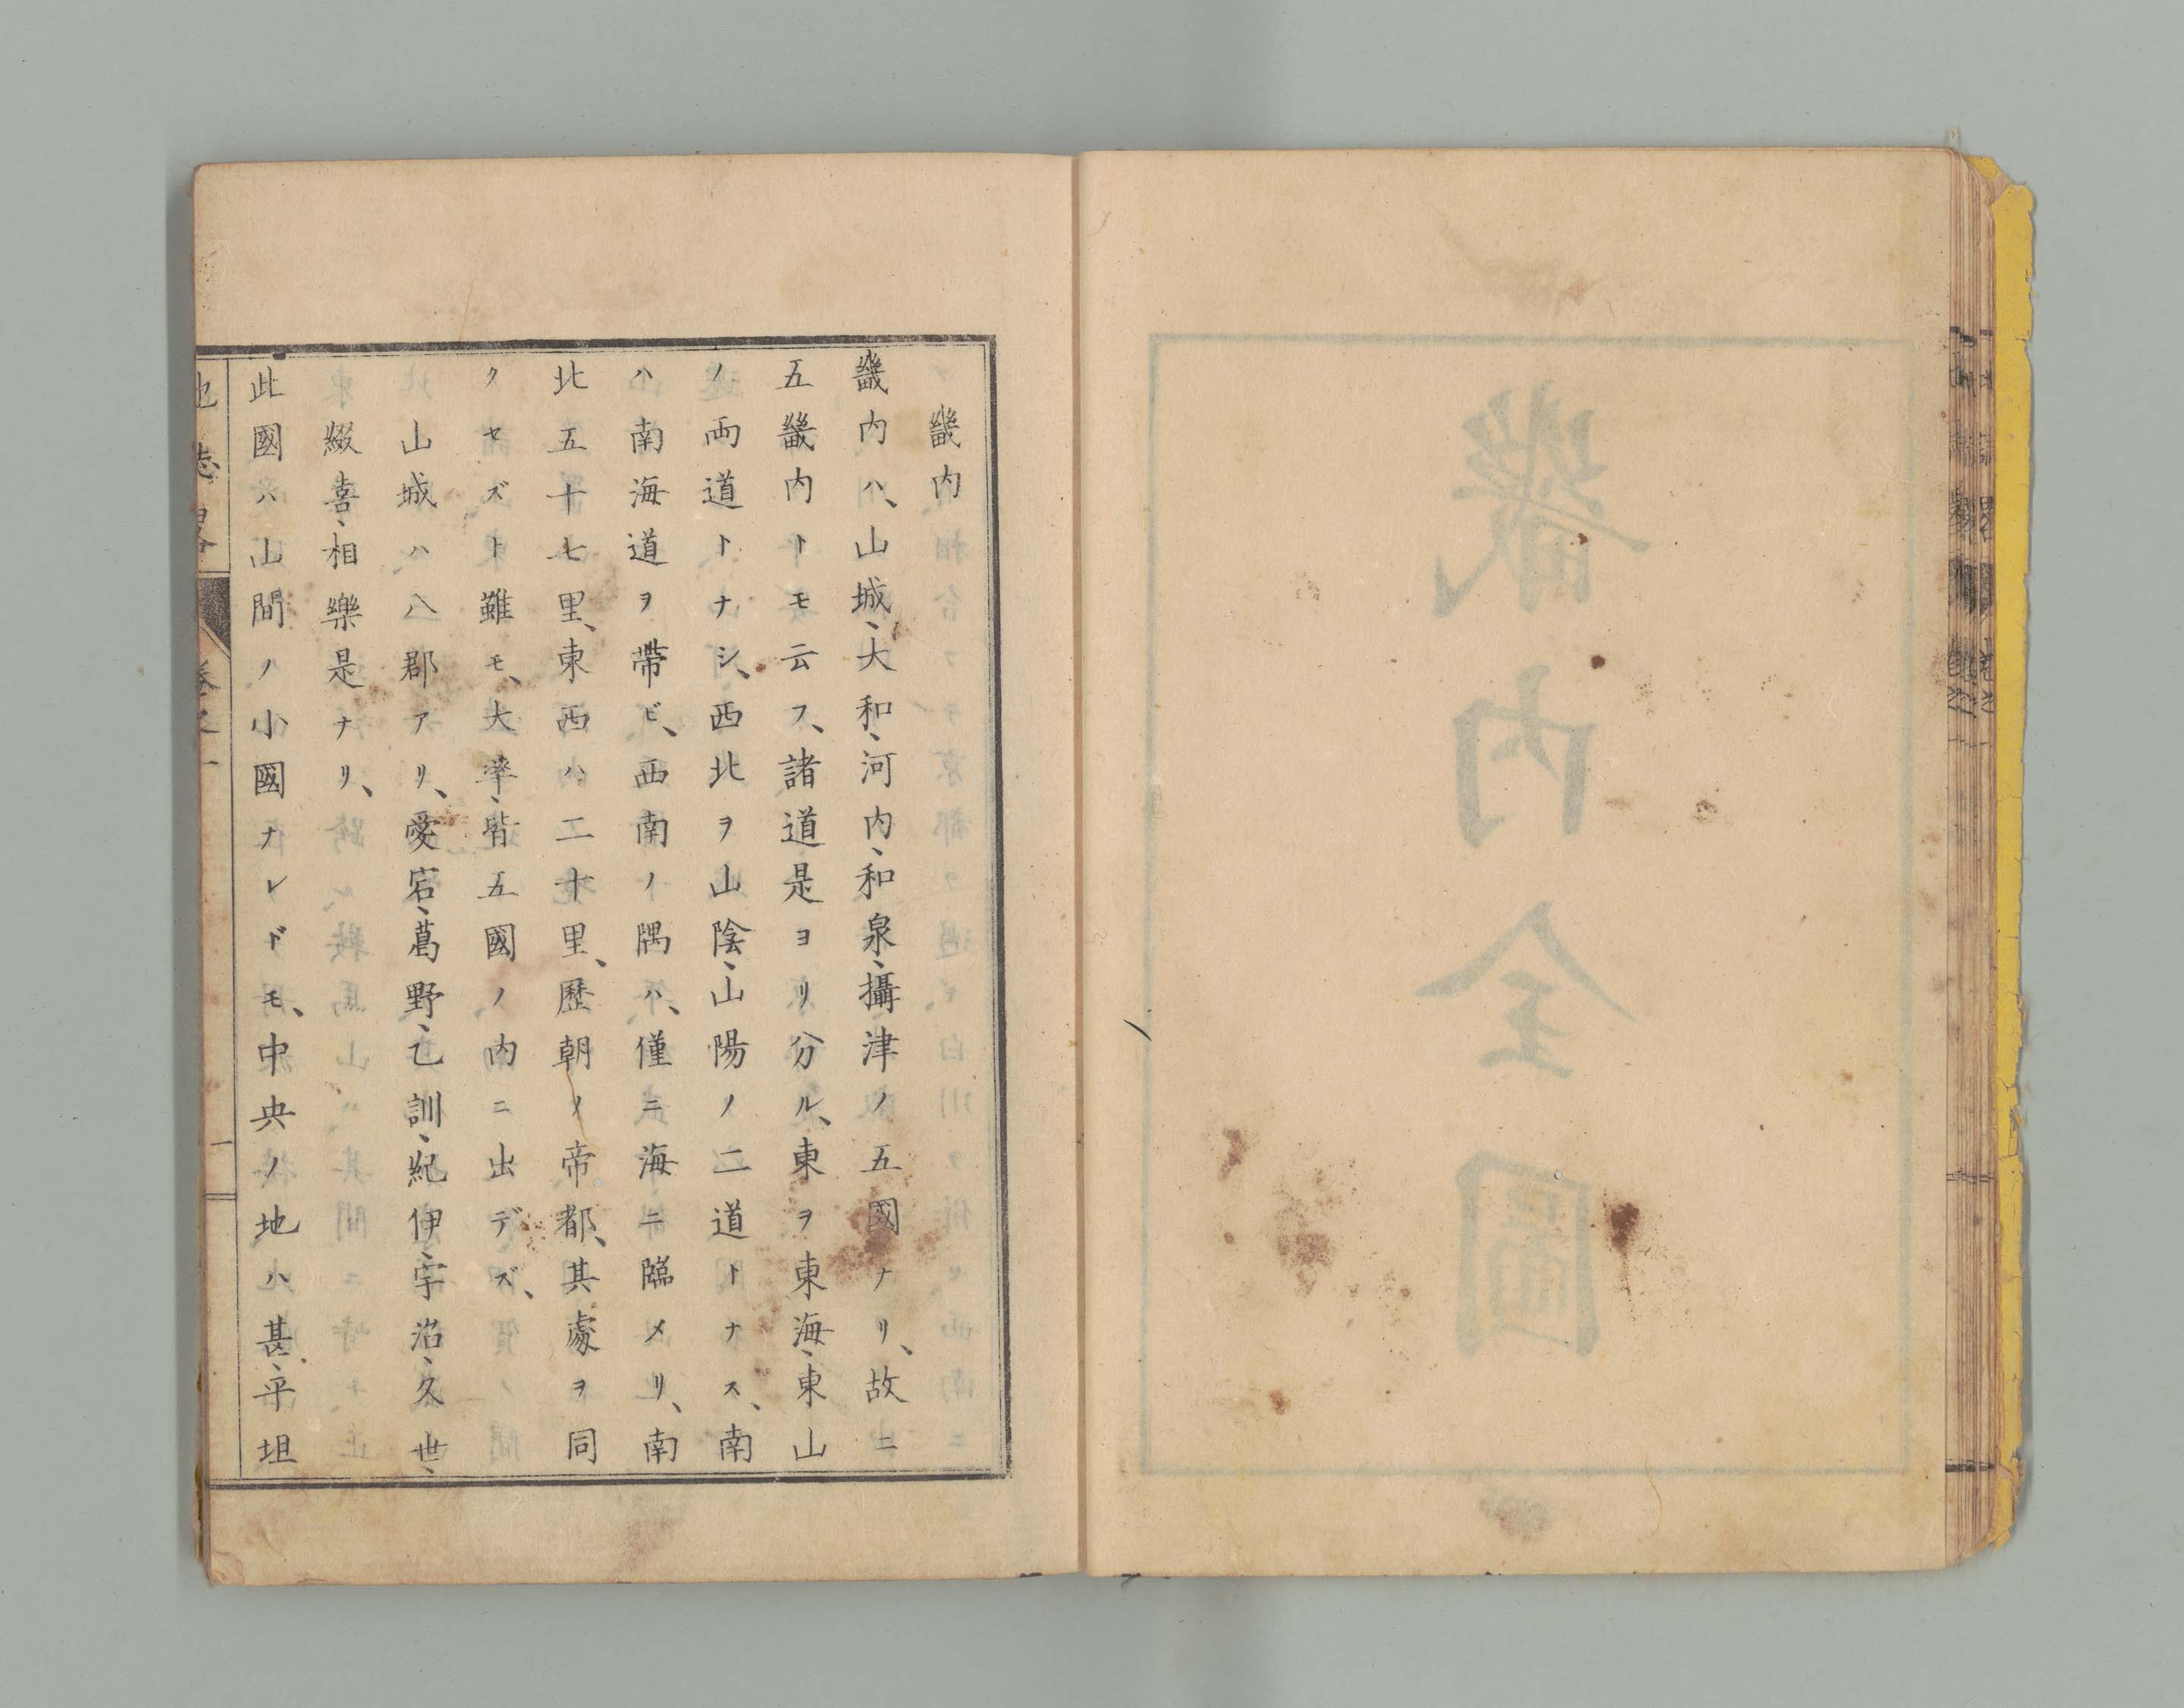 畿內全圖
畿内
畿内ハ、山城、大和、河内、和泉、攝津ノ五國ナリ、故ニ
五畿内トモ云フ、諸道是ヨリ分ル、東ヲ東海、東山
ノ両道トナシ、西北ヲ山陰、山陽ノ二道トナス、南
ハ南海道ヲ帶ビ、西南ノ隅ハ、僅ニ海ニ臨メリ、南
北五十七里、東西ハ二十里、歷朝ノ帝都、其處ヲ同
クセズト雖モ、大率、皆五國ノ内ニ出デズ、
山城ハ八郡アリ、愛宕、葛野、乙訓、紀伊、宇治、久世、
綴喜、相樂是ナリ、
此國ハ山間ノ小國ナレドモ、中央ノ地ハ甚、平坦
地誌畧 卷之一 一